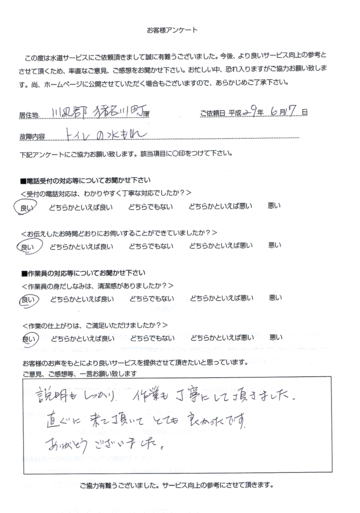 お客様アンケート
この度は水道サービスにご依頼頂きまして誠に有難うございました。今後、より良いサービス向上の参考と
させて頂くため、率直なご意見、ご感想をお聞かせ下さい。お忙しい中、恐れ入りますがご協力お願い致しま
す。尚、ホームページに公開させていただく場合もございますので、あらかじめご了承下さい。
居住地 川辺郡猪名川町 様 ご依頼日 平成 29年 6月 17日
故障内容 トイレの水もれ
下記アンケートにご協力お願い致します。該当項目に〇印をつけて下さい。
■電話受付の対応等についてお聞かせ下さい
<受付の電話対応は、わかりやすく丁寧な対応でしたか?>
良い どちらかといえば良い どちらでもない どちらかといえば悪い 悪い
<お伝えしたお時間どおりにお伺いすることができていましたか?>
良い どちらかといえば良い どちらでもない どちらかといえば悪い 悪い
■作業員の対応等についてお聞かせ下さい
<作業員の身だしなみは、清潔感がありましたか?>
良い どちらかといえば良い どちらでもない どちらかといえば悪い 悪い
<作業の仕上がりは、ご満足いただけましたか?>
良い どちらかといえば良い どちらでもない どちらかといえば悪い 悪い
お客様のお声をもとにより良いサービスを提供させて頂きたいと思っています。
ご意見、ご感想等、一言お願い致します
説明もしっかり 作業も丁寧にして頂きました。
直ぐに来て頂いてとても良かったです。
ありがとうございました。
ご協力有難うございました。サービス向上の参考にさせて頂きます。